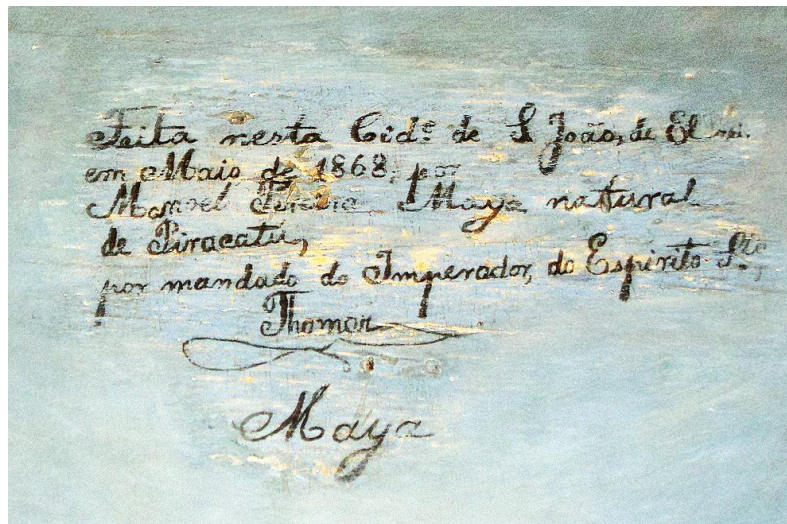 Feita nesta Cidᵉ de S João, de El rei.
em Maio de 1868, por
Manoel Ferreira Maya natural
de Piracatú,
por mandado do Imperador, do Espirito Sto,
Thomaz
Maya